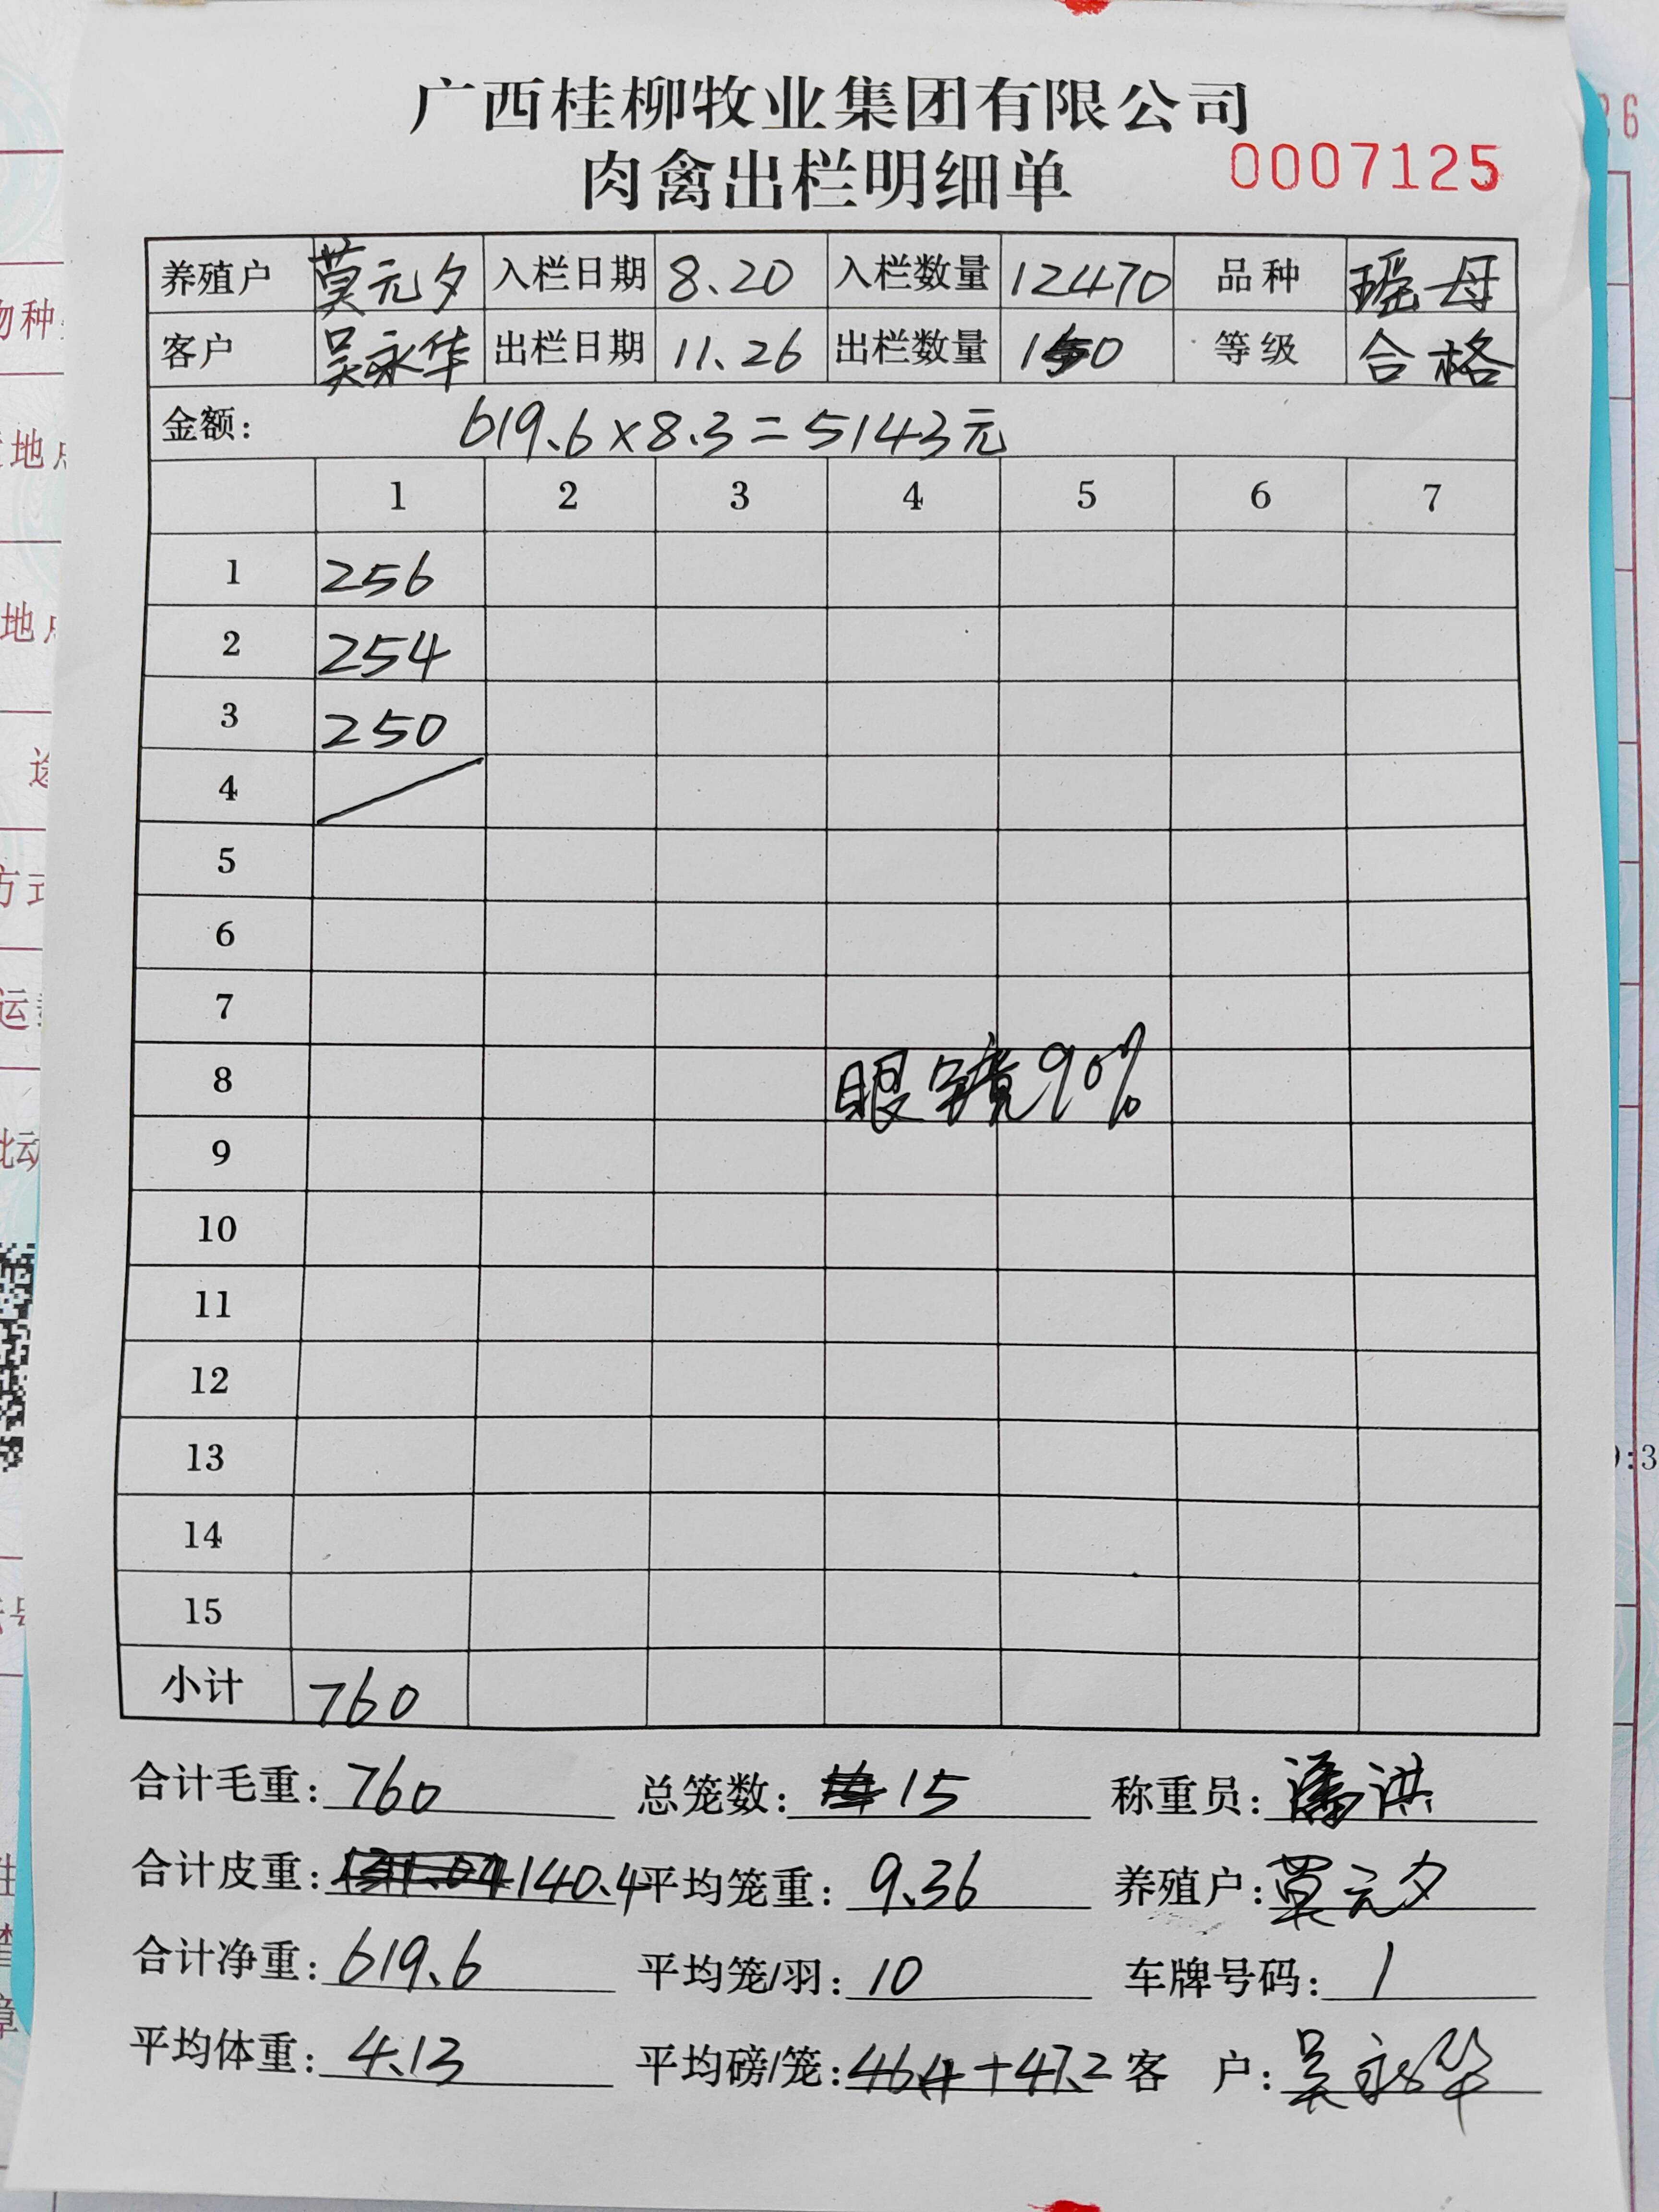 广西桂柳牧业集团有限公司
肉禽出栏明细单 0007125
养殖户 莫元夕 入栏日期 8.20 入栏数量 12470 品种 瑶母
客户 吴永华 出栏日期 11.26 出栏数量 150 等级 合格
金额: 619.6×8.3=5143元
1 2 3 4 5 6 7
1 256
2 254
3 250
4
5
6
7
8 眼镜90%
9
10
11
12
13
14
15
小计 760
合计毛重: 760 总笼数: 15 称重员: 潘洪
合计皮重: 140.4 平均笼重: 9.36 养殖户: 莫元夕
合计净重: 619.6 平均笼/羽: 10 车牌号码: 1
平均体重: 4.13 平均磅/笼: 46.4+47.2 客 户: 吴永华
物种
地点
地点
方式
26
9:3